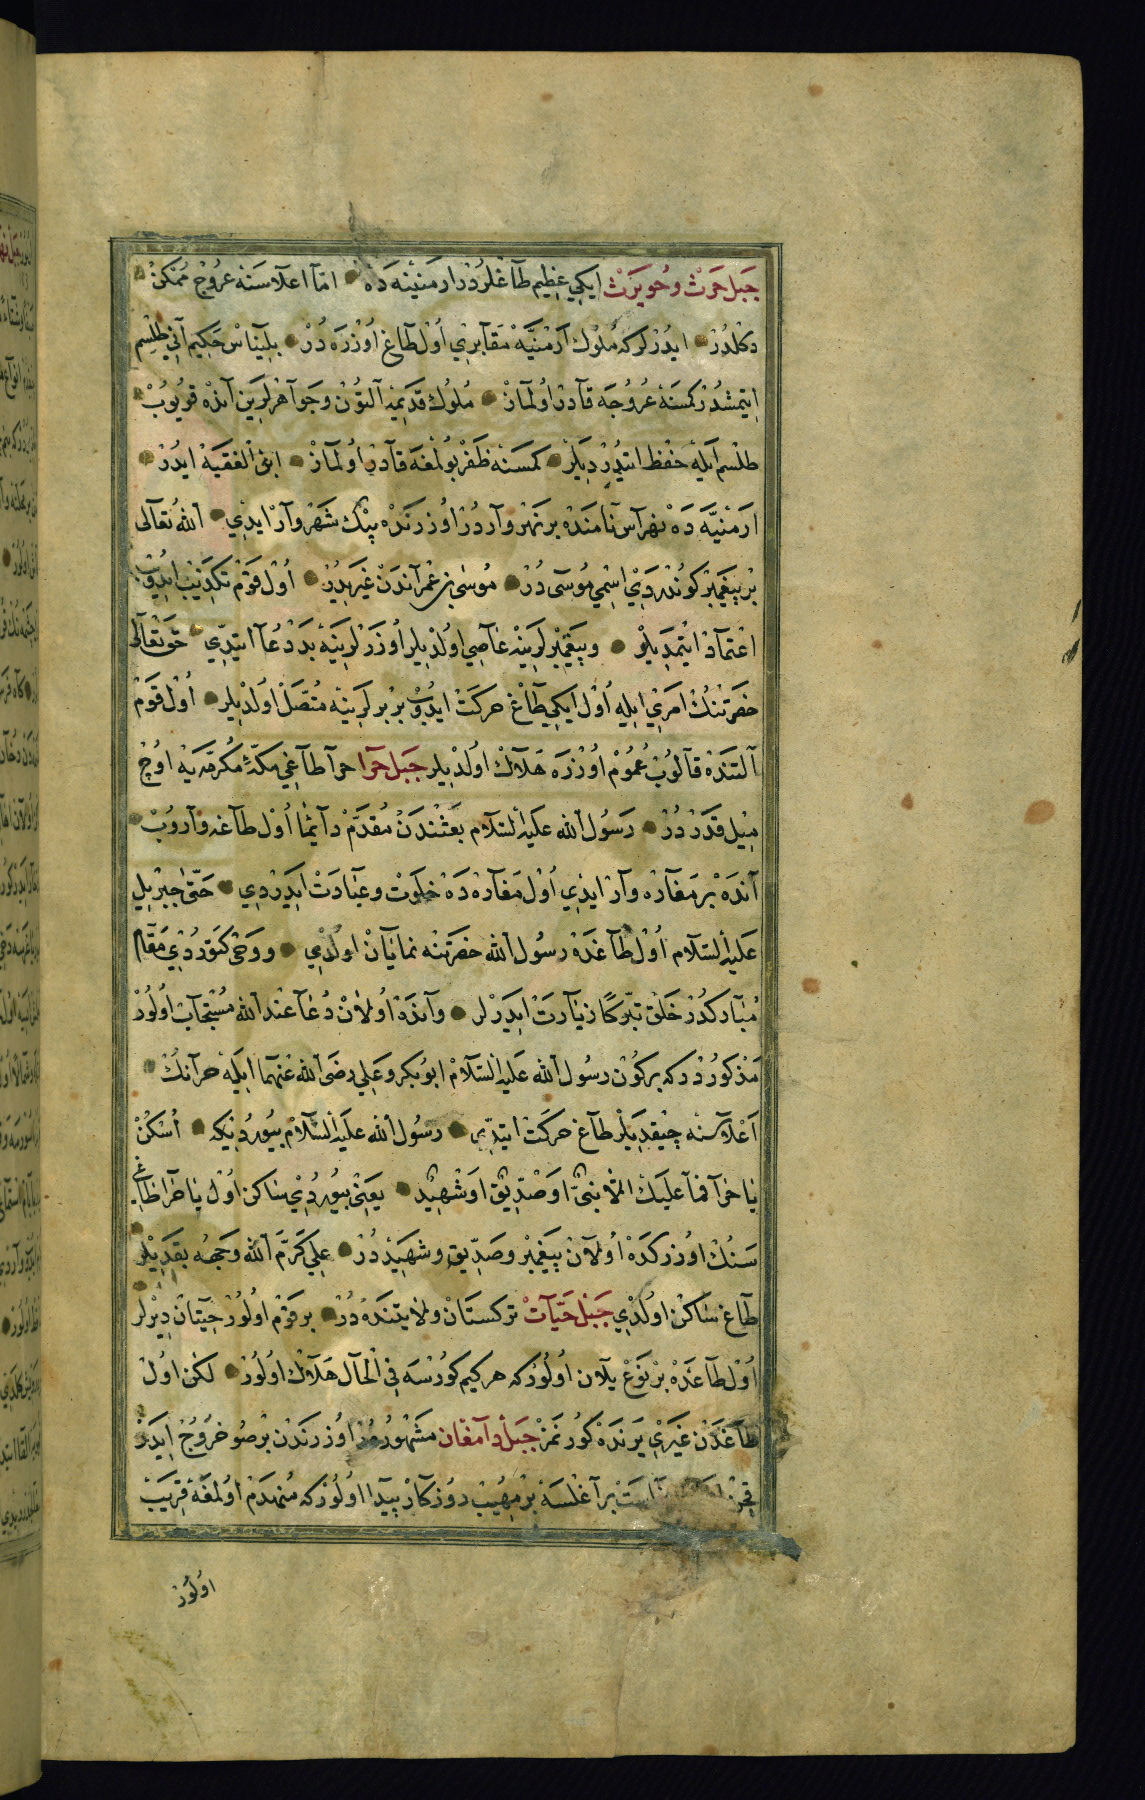 جبل حرث وحويرث ايكي عظيم طاغلردر ارمنيه ده امّا اعلاسنه عروج ممكن
دكلدر ايدرلركه ملوك ارمنيّه مقابري اول طاغ اوزره در بليناس حكيم آني طلسم
ايتمشدر كمسنه عروجه قادر اولماز ملوك قديميه آلتون وجواهرلرين آنده قويوب
طلسم ايله حفظ ايتديلر كمسنه ظفر بولمغه قادر اولماز ابن الفقيه ايدر
ارمنيّه ده نهر آس نامنده بر نهر واردر اوزرنده بيك شهر وار ايدي الله تعالى
بر پيغمبر كوندردي اسمي موسى در موسى بن عمراندن غيريدر اول قوم تكذيب ايدوب
اعتماد ايتمديلر وپيغمبرلرينه عاصي اولديلر اوزرلرينه بد دعا ايتدي حق تعالى
حضرتنك امري ايله اول ايكي طاغ حركت ايدوب بربرلرينه متّصل اولديلر اول قوم
آلتنده قالوب عموم اوزره هلاك اولديلر جبل حرا حرا طاغي مكّه مكرّمه يه اوچ
ميل قدر در رسول الله عليه السلام بعثندن مقدّم دايما اول طاغه واروب
آنده بر مغاره وار ايدي اول مغاره ده خلوت وعبادت ايدردي حتّى جبريل
عليه السلام اول طاغده رسول الله حضرتنه نمايان اولدي ووحى كتوردي مقام
مباركدر خلق تبّركا زيارت ايدرلر وآنده اولان دعا عند الله مستجاب اولور
مذكوردركه بركون رسول الله عليه السلام ابوبكر وعلي رضى الله عنهما ايله حرانك
اعلاسنه چيقديلر طاغ حركت ايتدي رسول الله عليه السلام بيورديكه اسكن
يا حرا فما عليك الّا نبىّ او صدّيق او شهيد يعنى بيوردي ساكن اول يا حرا طاغي
سنك اوزركده اولان پيغمبر وصدّيق وشهيد در علي كرّم الله وجهه بقديلر
طاغ ساكن اولدي جبل حيّات تركستان ولايتنده در بر قوم اولور حيتان ديرلر
اول طاغده بر نوع يلان اولوركه هر كيم كورسه في الحال هلاك اولور لكن اول
طاغدن غيري يرنده كورنمز جبل دامغان مشهوردر اوزرندن بر صو خروج ايدر
بر آغلسه بر مهيب روزكار پيدا اولوركه منهدم اولمغه قريب
اولور